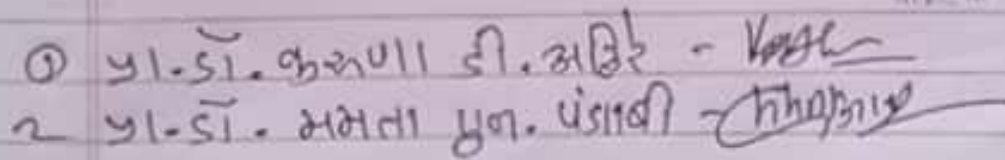 ① પ્રા.ડૉ. કરુણા ડી. અહિરે -
૨ પ્રા.ડૉ. મમતા એન. પંજાબી -